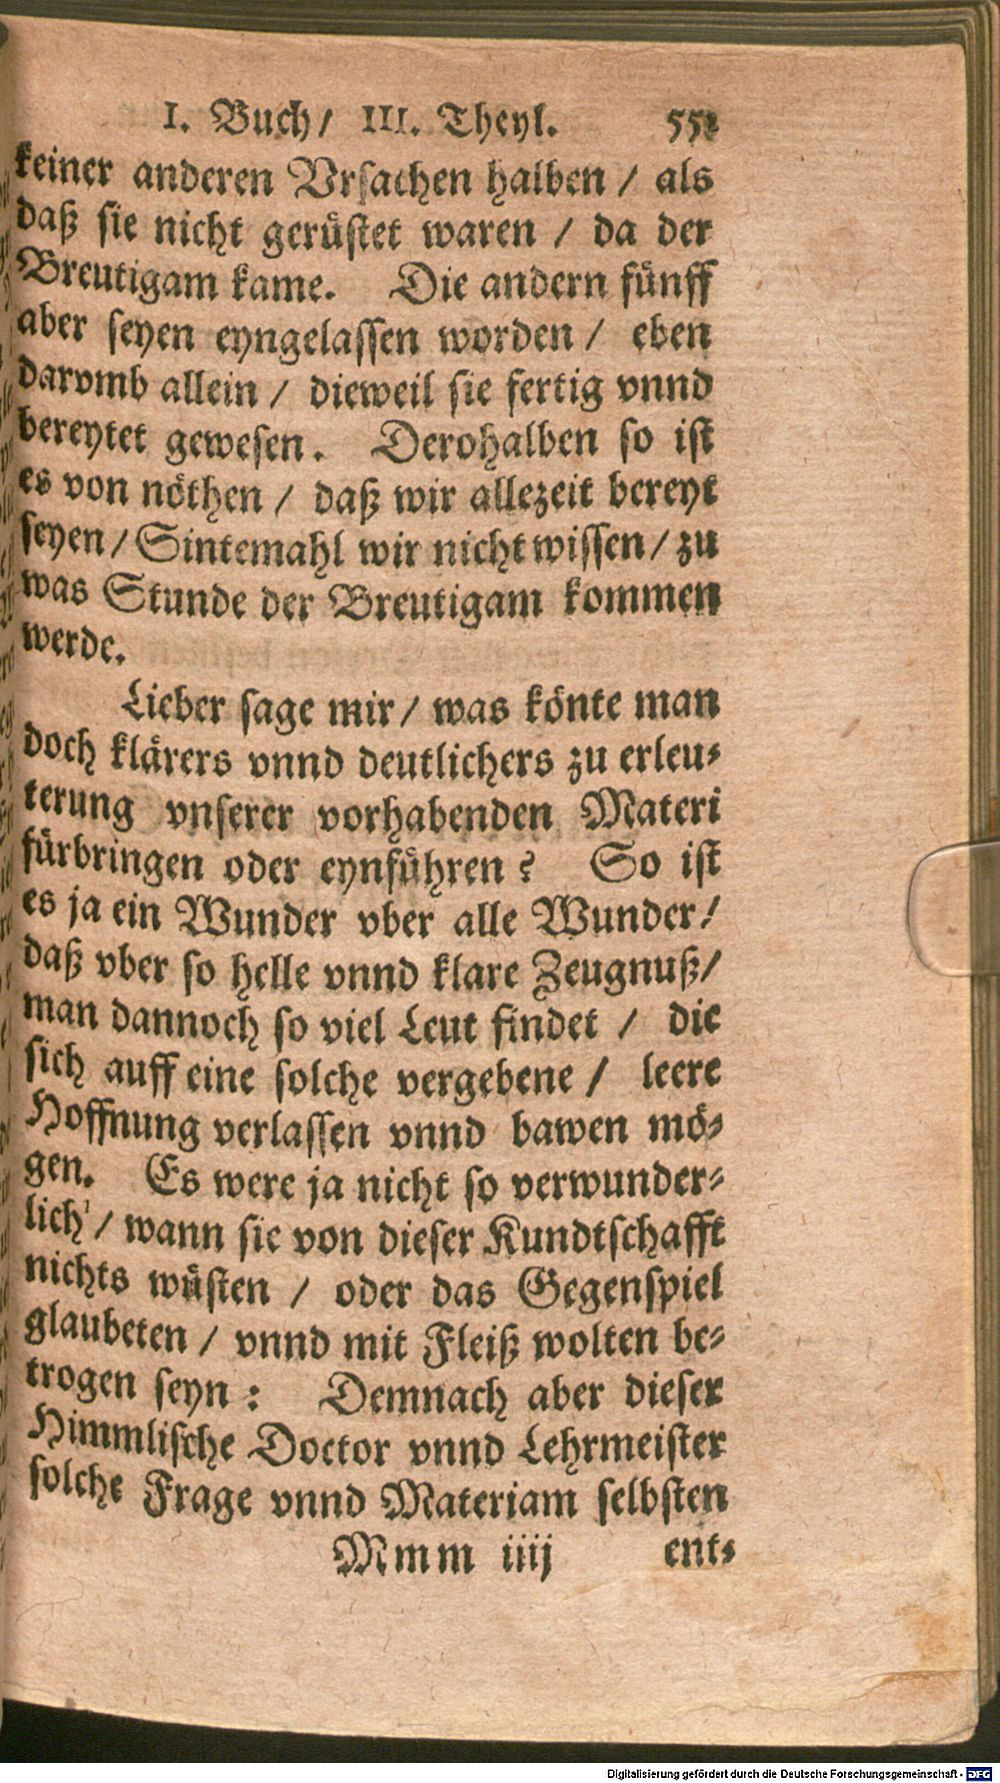 I. Buch/ III. Theyl. 551
keiner anderen Vrsachen halben / als
daß sie nicht gerüstet waren / da der
Breutigam kame. Die andern fünff
aber seyen eyngelassen worden / eben
darvmb allein / dieweil sie fertig vnnd
bereytet gewesen. Derohalben so ist
es von nöthen / daß wir allezeit bereyt
seyen / Sintemahl wir nicht wissen / zu
was Stunde der Breutigam kommen
werde.
Lieber sage mir / was könte man
doch klärers vnnd deutlichers zu erleu-
terung vnserer vorhabenden Materi
fürbringen oder eynführen? So ist
es ja ein Wunder vber alle Wunder /
daß vber so helle vnnd klare Zeugnuß /
man dannoch so viel Leut findet / die
sich auff eine solche vergebene / leere
Hoffnung verlassen vnnd bawen mö-
gen. Es were ja nicht so verwunder-
lich / wann sie von dieser Kundtschafft
nichts wüsten / oder das Gegenspiel
glaubeten / vnnd mit Fleiß wolten be-
trogen seyn: Demnach aber dieser
Himmlische Doctor vnnd Lehrmeister
solche Frage vnnd Materiam selbsten
Mmm iiij ent-
Digitalisierung gefördert durch die Deutsche Forschungsgemeinschaft - DFG